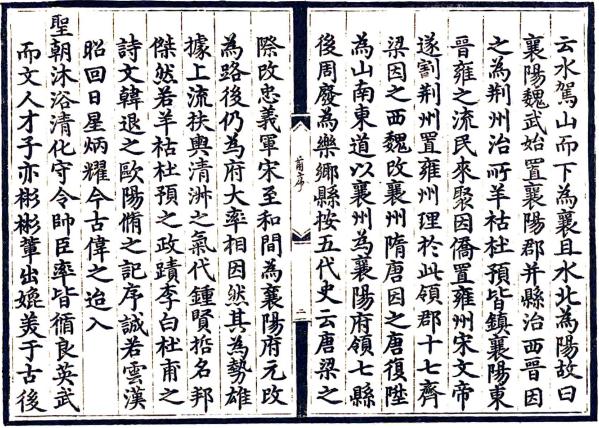 云水駕山而下為襄且水北為陽故曰
襄陽魏武始置襄陽郡并縣治西晉因
之為荆州治所羊祜杜預皆鎮襄陽東
晉雍之流民來聚因僑置雍州宋文帝
遂割荆州置雍州理於此領郡十七齊
梁因之西魏改襄州隋唐因之唐復陞
為山南東道以襄州為襄陽府領七縣
後周廢為樂鄉縣按五代史云唐梁之
前序
二
際改忠義軍宋至和間為襄陽府元改
為路後仍為府大率相因然其為勢雄
據上流扶輿清淑之氣代鍾賢哲名邦
傑然若羊祜杜預之政蹟李白杜甫之
詩文韓退之歐陽脩之記序誠若雲漢
昭回日星炳耀今古偉之迨入
聖朝沐浴清化守令帥臣率皆循良英武
而文人才子亦彬彬輩出媲美于古後